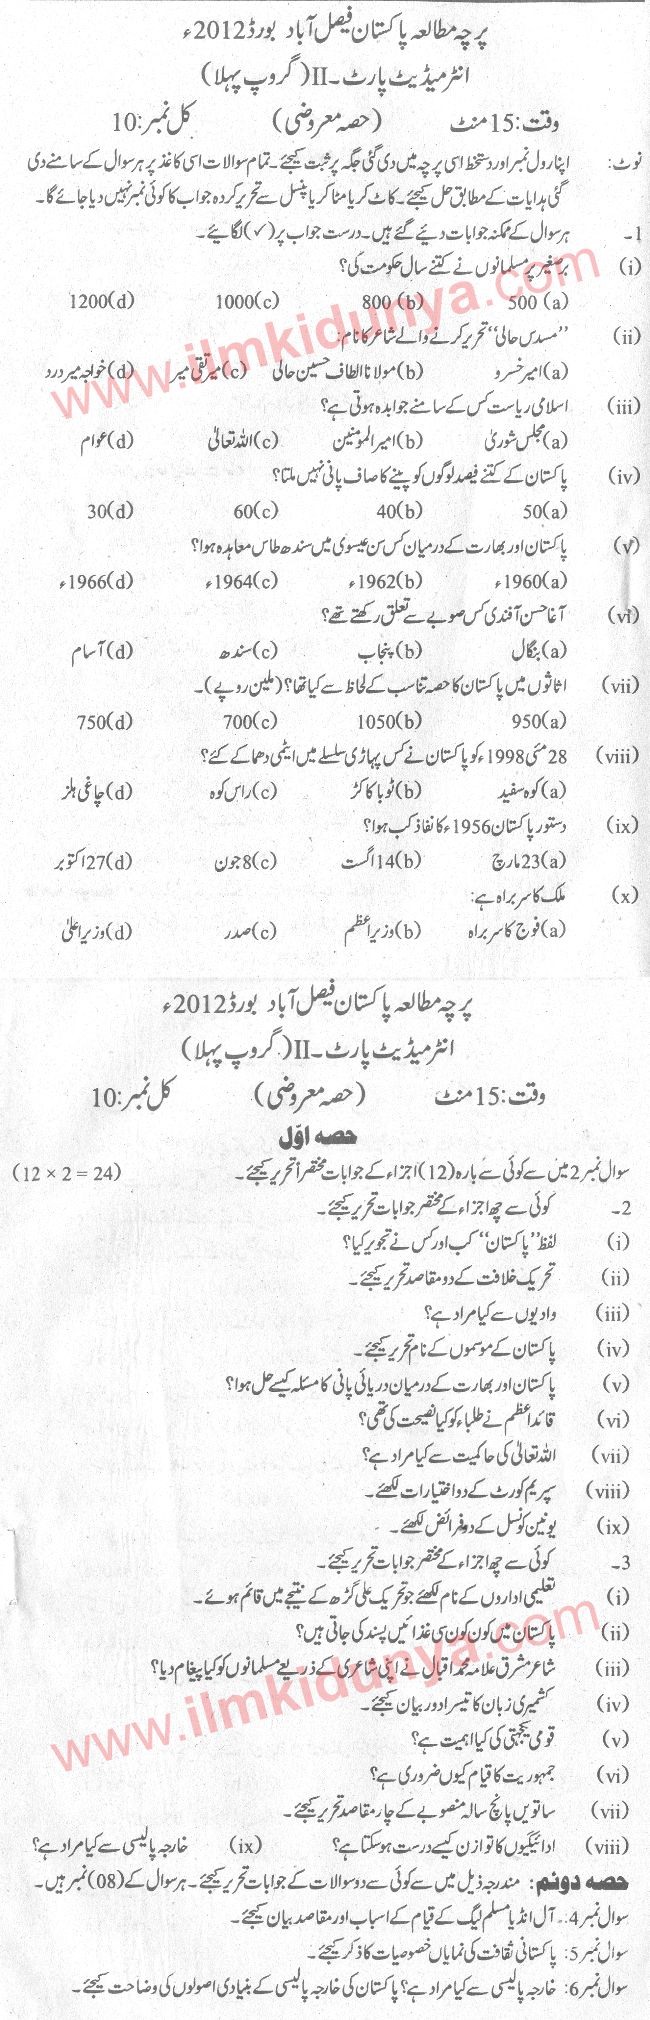 پرچہ مطالعہ پاکستان فیصل آباد بورڈ 2012ء
انٹرمیڈیٹ پارٹ۔II (گروپ پہلا)
وقت: 15 منٹ (حصہ معروضی) کل نمبر: 10
نوٹ: اپنا رول نمبر اور دستخط اسی پرچہ میں دی گئی جگہ پر ثبت کیجئے۔ تمام سوالات اسی کاغذ پر ہر سوال کے سامنے دی
گئی ہدایات کے مطابق حل کیجئے۔ کاٹ کر یا مٹا کر یا پنسل سے تحریر کردہ جواب کا کوئی نمبر نہیں دیا جائے گا۔
1۔ ہر سوال کے ممکنہ جوابات دیئے گئے ہیں۔ درست جواب پر (✓) لگائیے۔
(i) برصغیر پر مسلمانوں نے کتنے سال حکومت کی؟
(a) 500 (b) 800 (c) 1000 (d) 1200
(ii) "مسدس حالی" تحریر کرنے والے شاعر کا نام:
(a) امیر خسرو (b) مولانا الطاف حسین حالی (c) میر تقی میر (d) خواجہ میر درد
(iii) اسلامی ریاست کس کے سامنے جوابدہ ہوتی ہے؟
(a) مجلس شوریٰ (b) امیر المومنین (c) اللہ تعالیٰ (d) عوام
(iv) پاکستان کے کتنے فیصد لوگوں کو پینے کا صاف پانی نہیں ملتا؟
(a) 50 (b) 40 (c) 60 (d) 30
(v) پاکستان اور بھارت کے درمیان کس سن عیسوی میں سندھ طاس معاہدہ ہوا؟
(a) 1960ء (b) 1962ء (c) 1964ء (d) 1966ء
(vi) آغا حسن آفندی کس صوبے سے تعلق رکھتے تھے؟
(a) بنگال (b) پنجاب (c) سندھ (d) آسام
(vii) اثاثوں میں پاکستان کا حصہ تناسب کے لحاظ سے کیا تھا؟ (ملین روپے)۔
(a) 950 (b) 1050 (c) 700 (d) 750
(viii) 28 مئی 1998ء کو پاکستان نے کس پہاڑی سلسلے میں ایٹمی دھماکے کئے؟
(a) کوہ سفید (b) ٹوبا کاکڑ (c) راس کوہ (d) چاغی ہلز
(ix) دستور پاکستان 1956ء کا نفاذ کب ہوا؟
(a) 23 مارچ (b) 14 اگست (c) 8 جون (d) 27 اکتوبر
(x) ملک کا سربراہ ہے:
(a) فوج کا سربراہ (b) وزیراعظم (c) صدر (d) وزیراعلیٰ
پرچہ مطالعہ پاکستان فیصل آباد بورڈ 2012ء
انٹرمیڈیٹ پارٹ۔II (گروپ پہلا)
وقت: 15 منٹ (حصہ معروضی) کل نمبر: 10
حصہ اوّل
سوال نمبر 2 میں سے کوئی سے بارہ (12) اجزاء کے جوابات مختصراً تحریر کیجئے۔ (12 × 2 = 24)
2۔ کوئی سے چھ اجزاء کے مختصر جوابات تحریر کیجئے۔
(i) لفظ "پاکستان" کب اور کس نے تجویز کیا؟
(ii) تحریک خلافت کے دو مقاصد تحریر کیجئے۔
(iii) وادیوں سے کیا مراد ہے؟
(iv) پاکستان کے موسموں کے نام تحریر کیجئے۔
(v) پاکستان اور بھارت کے درمیان دریائی پانی کا مسئلہ کیسے حل ہوا؟
(vi) قائداعظم نے طلباء کو کیا نصیحت کی تھی؟
(vii) اللہ تعالیٰ کی حاکمیت سے کیا مراد ہے؟
(viii) سپریم کورٹ کے دو اختیارات لکھئے۔
(ix) یونین کونسل کے دو فرائض لکھئے۔
3۔ کوئی سے چھ اجزاء کے مختصر جوابات تحریر کیجئے۔
(i) تعلیمی اداروں کے نام لکھئے جو تحریک علی گڑھ کے نتیجے میں قائم ہوئے۔
(ii) پاکستان میں کون کون سی غذائیں پسند کی جاتی ہیں؟
(iii) شاعر مشرق علامہ محمد اقبال نے اپنی شاعری کے ذریعے مسلمانوں کو کیا پیغام دیا؟
(iv) کشمیری زبان کا تیسرا دور بیان کیجئے۔
(v) قومی یکجہتی کی کیا اہمیت ہے؟
(vi) جمہوریت کا قیام کیوں ضروری ہے؟
(vii) ساتویں پانچ سالہ منصوبے کے چار مقاصد تحریر کیجئے۔
(viii) ادائیگیوں کا توازن کیسے درست ہو سکتا ہے؟ (ix) خارجہ پالیسی سے کیا مراد ہے؟
حصہ دوئم: مندرجہ ذیل میں سے کوئی سے دو سوالات کے جوابات تحریر کیجئے۔ ہر سوال کے (08) نمبر ہیں۔
سوال نمبر 4: آل انڈیا مسلم لیگ کے قیام کے اسباب اور مقاصد بیان کیجئے۔
سوال نمبر 5: پاکستانی ثقافت کی نمایاں خصوصیات کا ذکر کیجئے۔
سوال نمبر 6: خارجہ پالیسی سے کیا مراد ہے؟ پاکستان کی خارجہ پالیسی کے بنیادی اصولوں کی وضاحت کیجئے۔
www.ilmkidunya.com
www.ilmkidunya.com